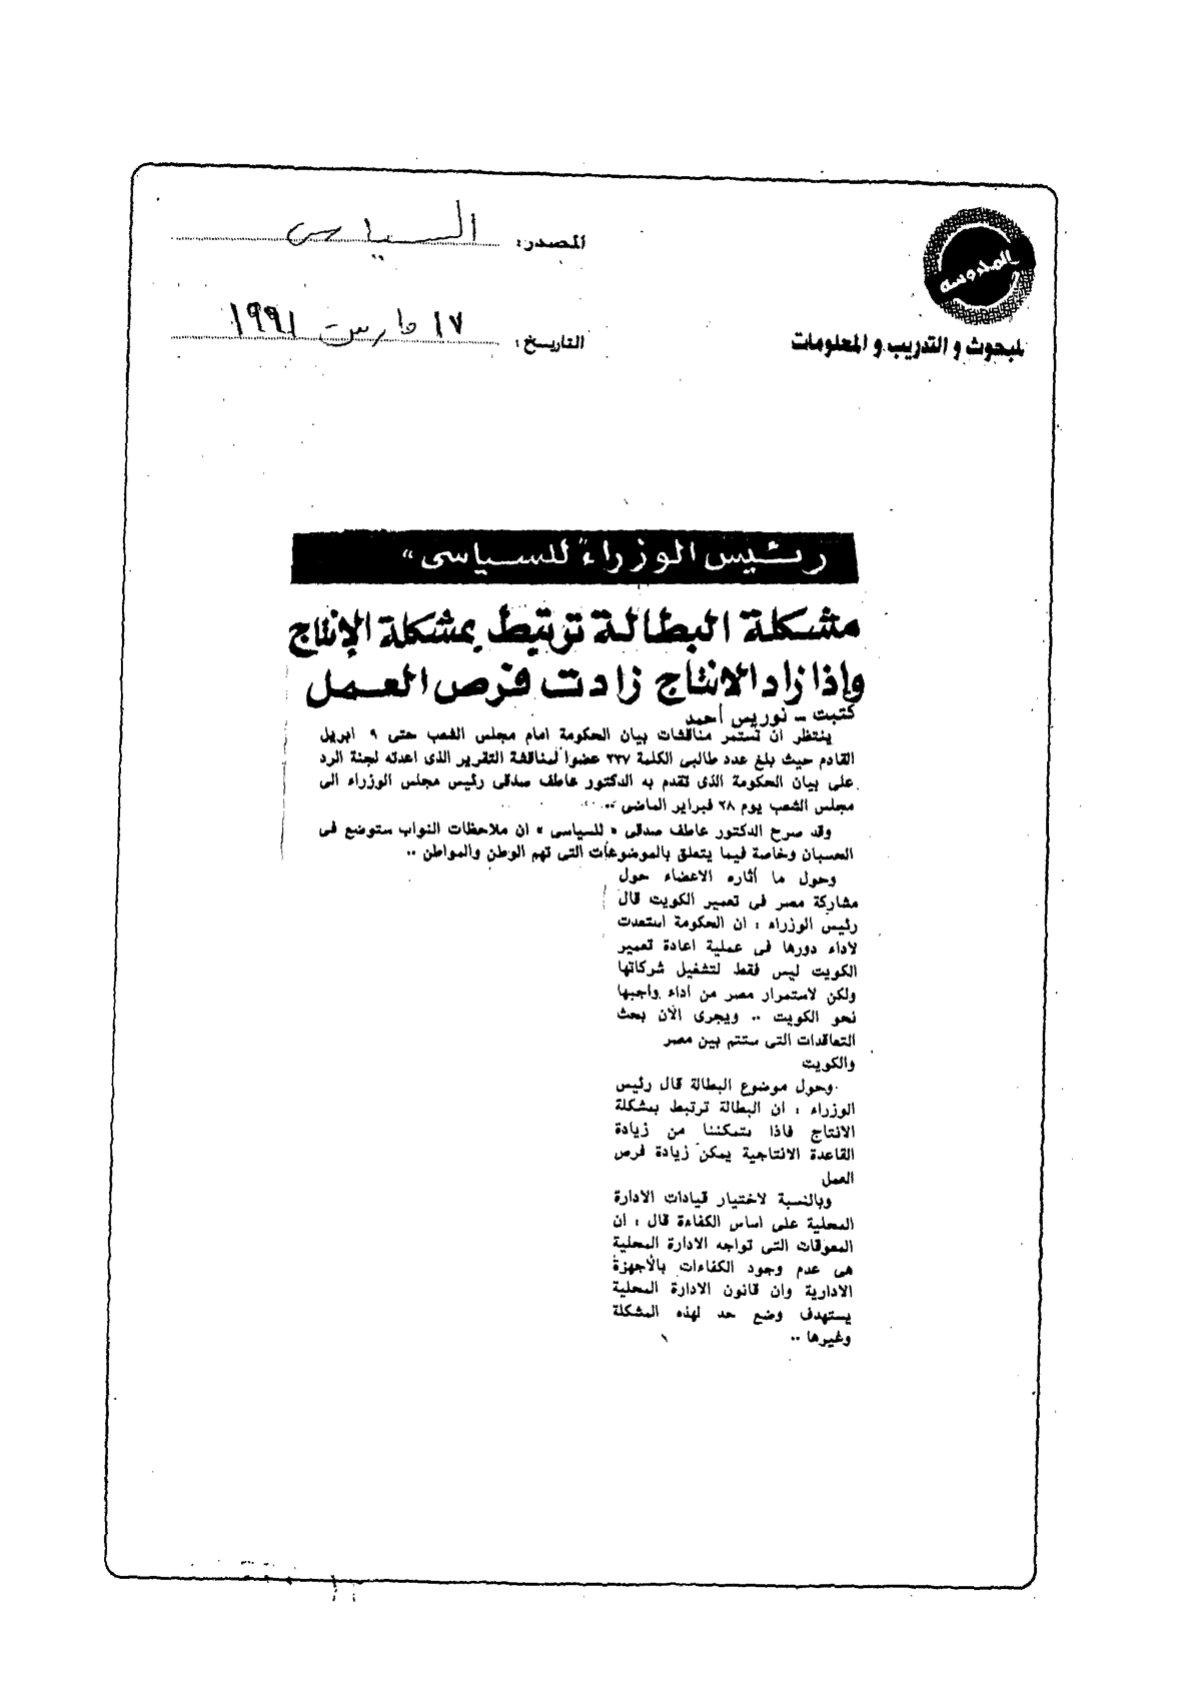 المصدر: السياسى
المدروسه
التاريخ: ١٧ مارس ١٩٩١
للبحوث و التدريب و المعلومات
رئيس الوزراء "للسياسى"
مشكلة البطالة ترتبط بمشكلة الإنتاج
وإذا زاد الانتاج زادت فرص العمل
كتبت - نوريس أحمد
ينتظر ان تستمر مناقشات بيان الحكومة امام مجلس الشعب حتى ٩ ابريل
القادم حيث بلغ عدد طالبى الكلمة ٢٣٧ عضوا لمناقشة التقرير الذى اعدته لجنة الرد
على بيان الحكومة الذى تقدم به الدكتور عاطف صدقى رئيس مجلس الوزراء الى
مجلس الشعب يوم ٢٨ فبراير الماضى ..
وقد صرح الدكتور عاطف صدقى « للسياسى » ان ملاحظات النواب ستوضع فى
الحسبان وخاصة فيما يتعلق بالموضوعات التى تهم الوطن والمواطن ..
وحول ما أثاره الاعضاء حول
مشاركة مصر فى تعمير الكويت قال
رئيس الوزراء : ان الحكومة استعدت
لاداء دورها فى عملية اعادة تعمير
الكويت ليس فقط لتشغيل شركاتها
ولكن لاستمرار مصر من اداء واجبها
نحو الكويت .. ويجرى الآن بحث
التعاقدات التى ستتم بين مصر
والكويت
وحول موضوع البطالة قال رئيس
الوزراء : ان البطالة ترتبط بمشكلة
الانتاج فاذا تمكننا من زيادة
القاعدة الانتاجية يمكن زيادة فرص
العمل
وبالنسبة لاختيار قيادات الادارة
المحلية على اساس الكفاءة قال : ان
المعوقات التى تواجه الادارة المحلية
هى عدم وجود الكفاءات بالأجهزة
الادارية وان قانون الادارة المحلية
يستهدف وضع حد لهذه المشكلة
وغيرها ..